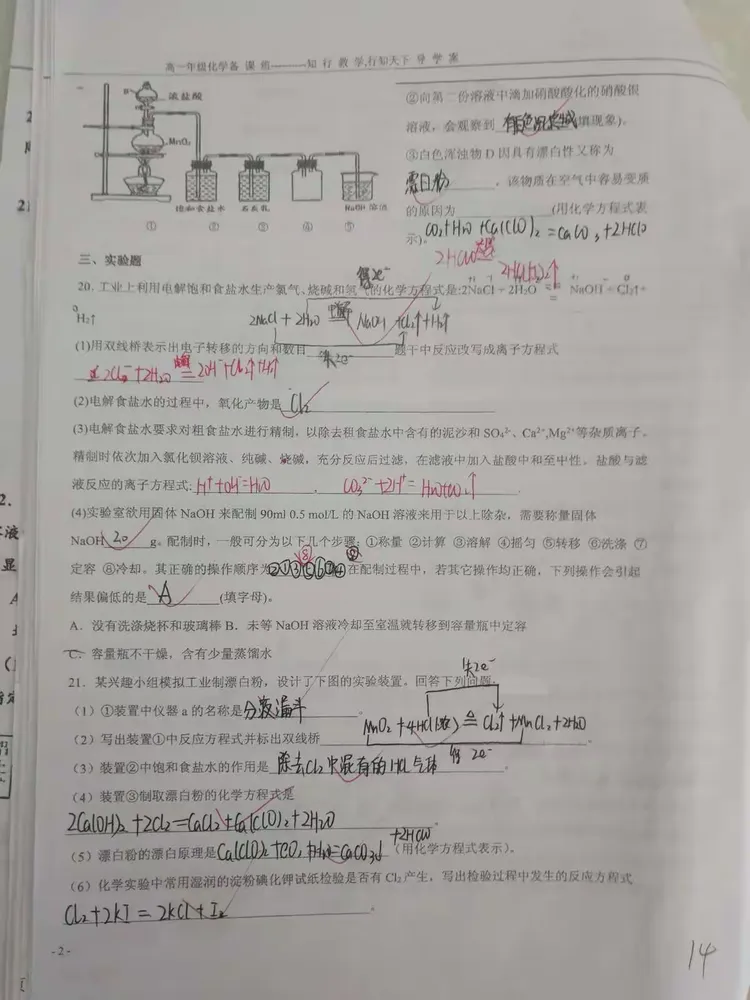 高一年级化学备 课 组--------知 行 教 学,行知天下 导 学 案
浓盐酸
MnO₂
饱和食盐水 石灰乳 NaOH 溶液
① ② ③ ④ ⑤
②向第二份溶液中滴加硝酸酸化的硝酸银
溶液，会观察到 有白色沉淀生成 (填现象)。
③白色浑浊物 D 因具有漂白性又称为
漂白粉 。该物质在空气中容易变质
的原因为 (用化学方程式表
示)。CO₂+H₂O+Ca(ClO)₂=CaCO₃+2HClO
2HClO 光照 2HCl+O₂↑
三、实验题
20. 工业上利用电解饱和食盐水生产氯气、烧碱和氢气的化学方程式是:2NaCl + 2H₂O = NaOH + Cl₂↑+
H₂↑
得2e⁻
2NaCl + 2H₂O 电解 NaOH +Cl₂↑+H₂↑
(1)用双线桥表示出电子转移的方向和数目 失2e⁻ 题干中反应改写成离子方程式
2Cl⁻+2H₂O 电解 = 2OH⁻+Cl₂↑+H₂↑
(2)电解食盐水的过程中，氧化产物是 Cl₂
(3)电解食盐水要求对粗食盐水进行精制，以除去粗食盐水中含有的泥沙和 SO₄²⁻、Ca²⁺,Mg²⁺等杂质离子。
精制时依次加入氯化钡溶液、纯碱、烧碱，充分反应后过滤，在滤液中加入盐酸中和至中性，盐酸与滤
液反应的离子方程式: H⁺+OH⁻=H₂O . CO₃²⁻+2H⁺=H₂O+CO₂↑
(4)实验室欲用固体 NaOH 来配制 90ml 0.5 mol/L 的 NaOH 溶液来用于以上除杂，需要称量固体
NaOH 2.0 g。配制时，一般可分为以下几个步骤: ①称量 ②计算 ③溶解 ④摇匀 ⑤转移 ⑥洗涤 ⑦
定容 ⑧冷却。其正确的操作顺序为 ②①③⑧⑤⑥⑦④ 在配制过程中，若其它操作均正确，下列操作会引起
结果偏低的是 A (填字母)。
A．没有洗涤烧杯和玻璃棒 B．未等 NaOH 溶液冷却至室温就转移到容量瓶中定容
C．容量瓶不干燥，含有少量蒸馏水
21．某兴趣小组模拟工业制漂白粉，设计了下图的实验装置。回答下列问题:
（1）①装置中仪器 a 的名称是 分液漏斗
失2e⁻
（2）写出装置①中反应方程式并标出双线桥 MnO₂ + 4HCl(浓) ≜ Cl₂↑ + MnCl₂ + 2H₂O
得 2e⁻
（3）装置②中饱和食盐水的作用是 除去Cl₂中混有的HCl气体
（4）装置③制取漂白粉的化学方程式是
2Ca(OH)₂ + 2Cl₂ = CaCl₂ + Ca(ClO)₂ + 2H₂O
（5）漂白粉的漂白原理是 Ca(ClO)₂ + CO₂ + H₂O = CaCO₃↓ +2HClO (用化学方程式表示)。
（6）化学实验中常用湿润的淀粉碘化钾试纸检验是否有 Cl₂ 产生，写出检验过程中发生的反应方程式
Cl₂ + 2KI = 2KCl + I₂ .
- 2 -
14